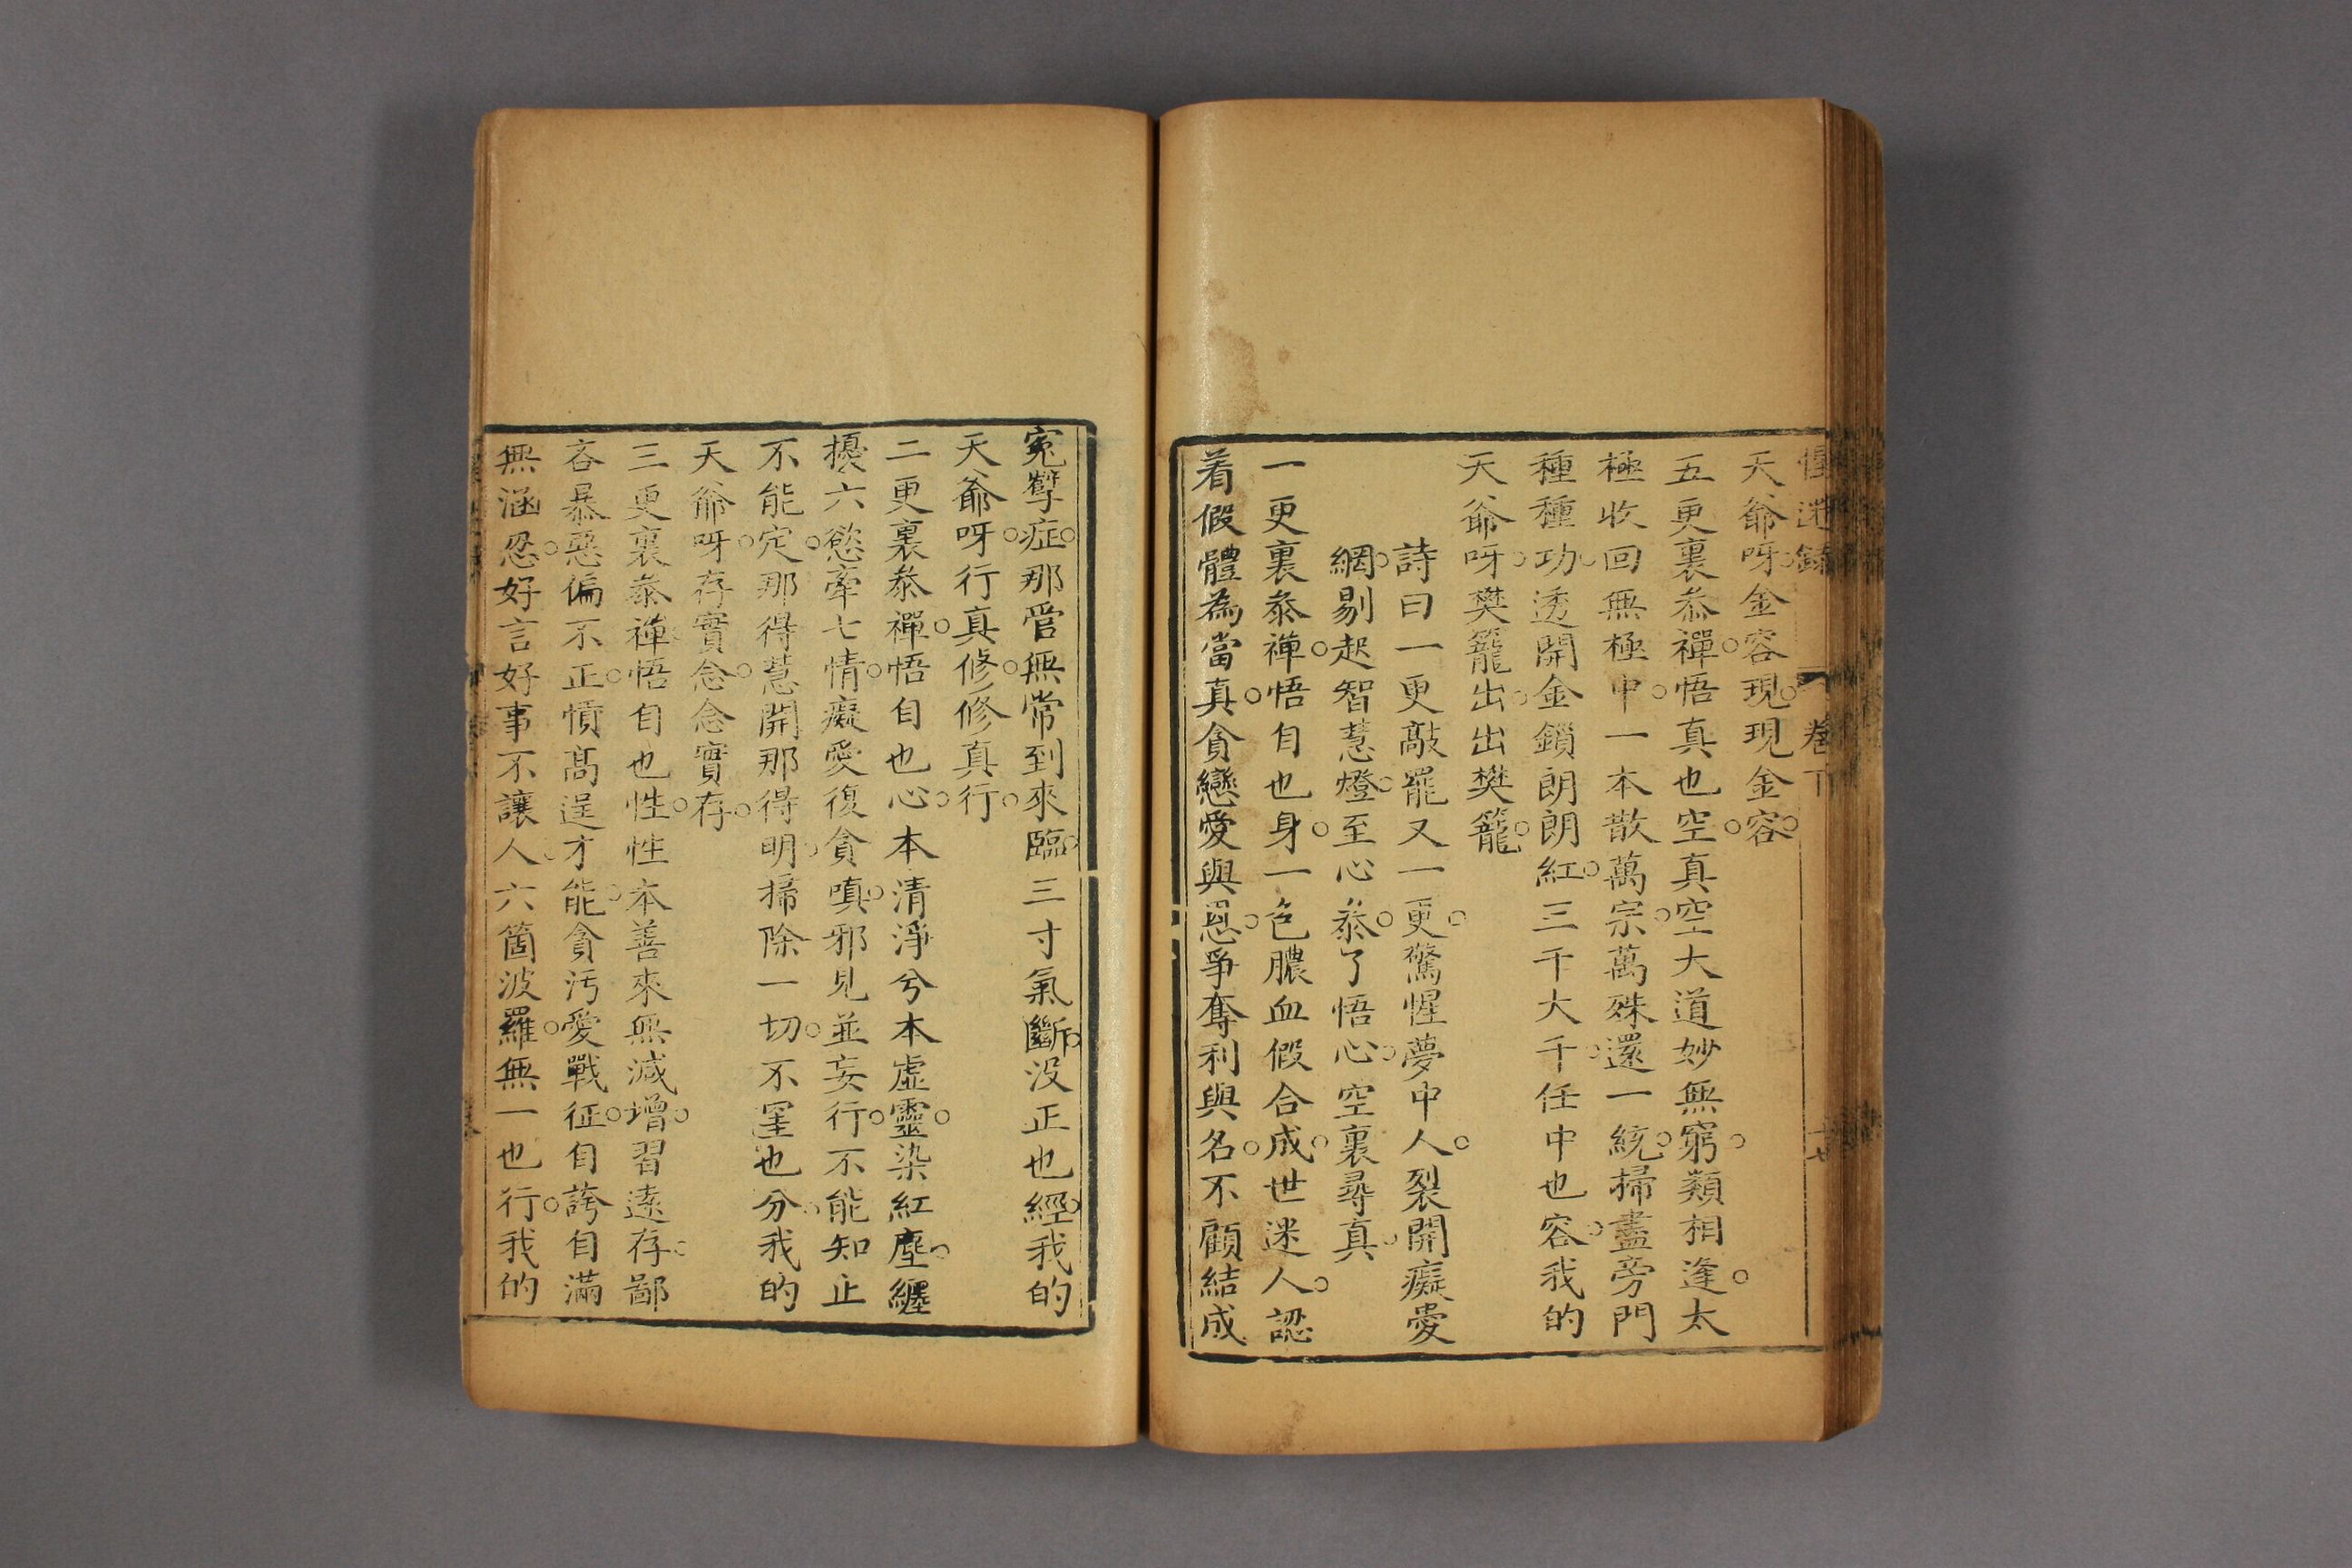 惺迷錄 卷下 十七
天爺呀金容現現金容
五更裏叅禪悟真也空真空大道妙無窮類相逢太
極收回無極中一本散萬宗萬殊還一統掃盡旁門
種種功透開金鎖朗朗紅三千大千任中也容我的
天爺呀樊籠出出樊籠
詩曰一更敲罷又一更驚惺夢中人裂開癡愛
網剔起智慧燈至心叅了悟心空裏尋真
一更裏叅禪悟自也身一色膿血假合成世迷人認
着假體為當真貪戀愛與恩爭奪利與名不顧結成
寃孽症那管無常到來臨三寸氣斷没正也經我的
天爺呀行真修修真行
二更裏叅禪悟自也心本清淨兮本虛靈染紅塵纏
擾六慾牽七情癡愛復貪嗔邪見並妄行不能知止
不能定那得慧開那得明掃除一切不罣也分我的
天爺呀存實念念實存
三更裏叅禪悟自也性性本善來無減增習遠存鄙
吝暴惡偏不正憤高逞才能貪污愛戰征自誇自滿
無涵忍好言好事不讓人六箇波羅無一也行我的